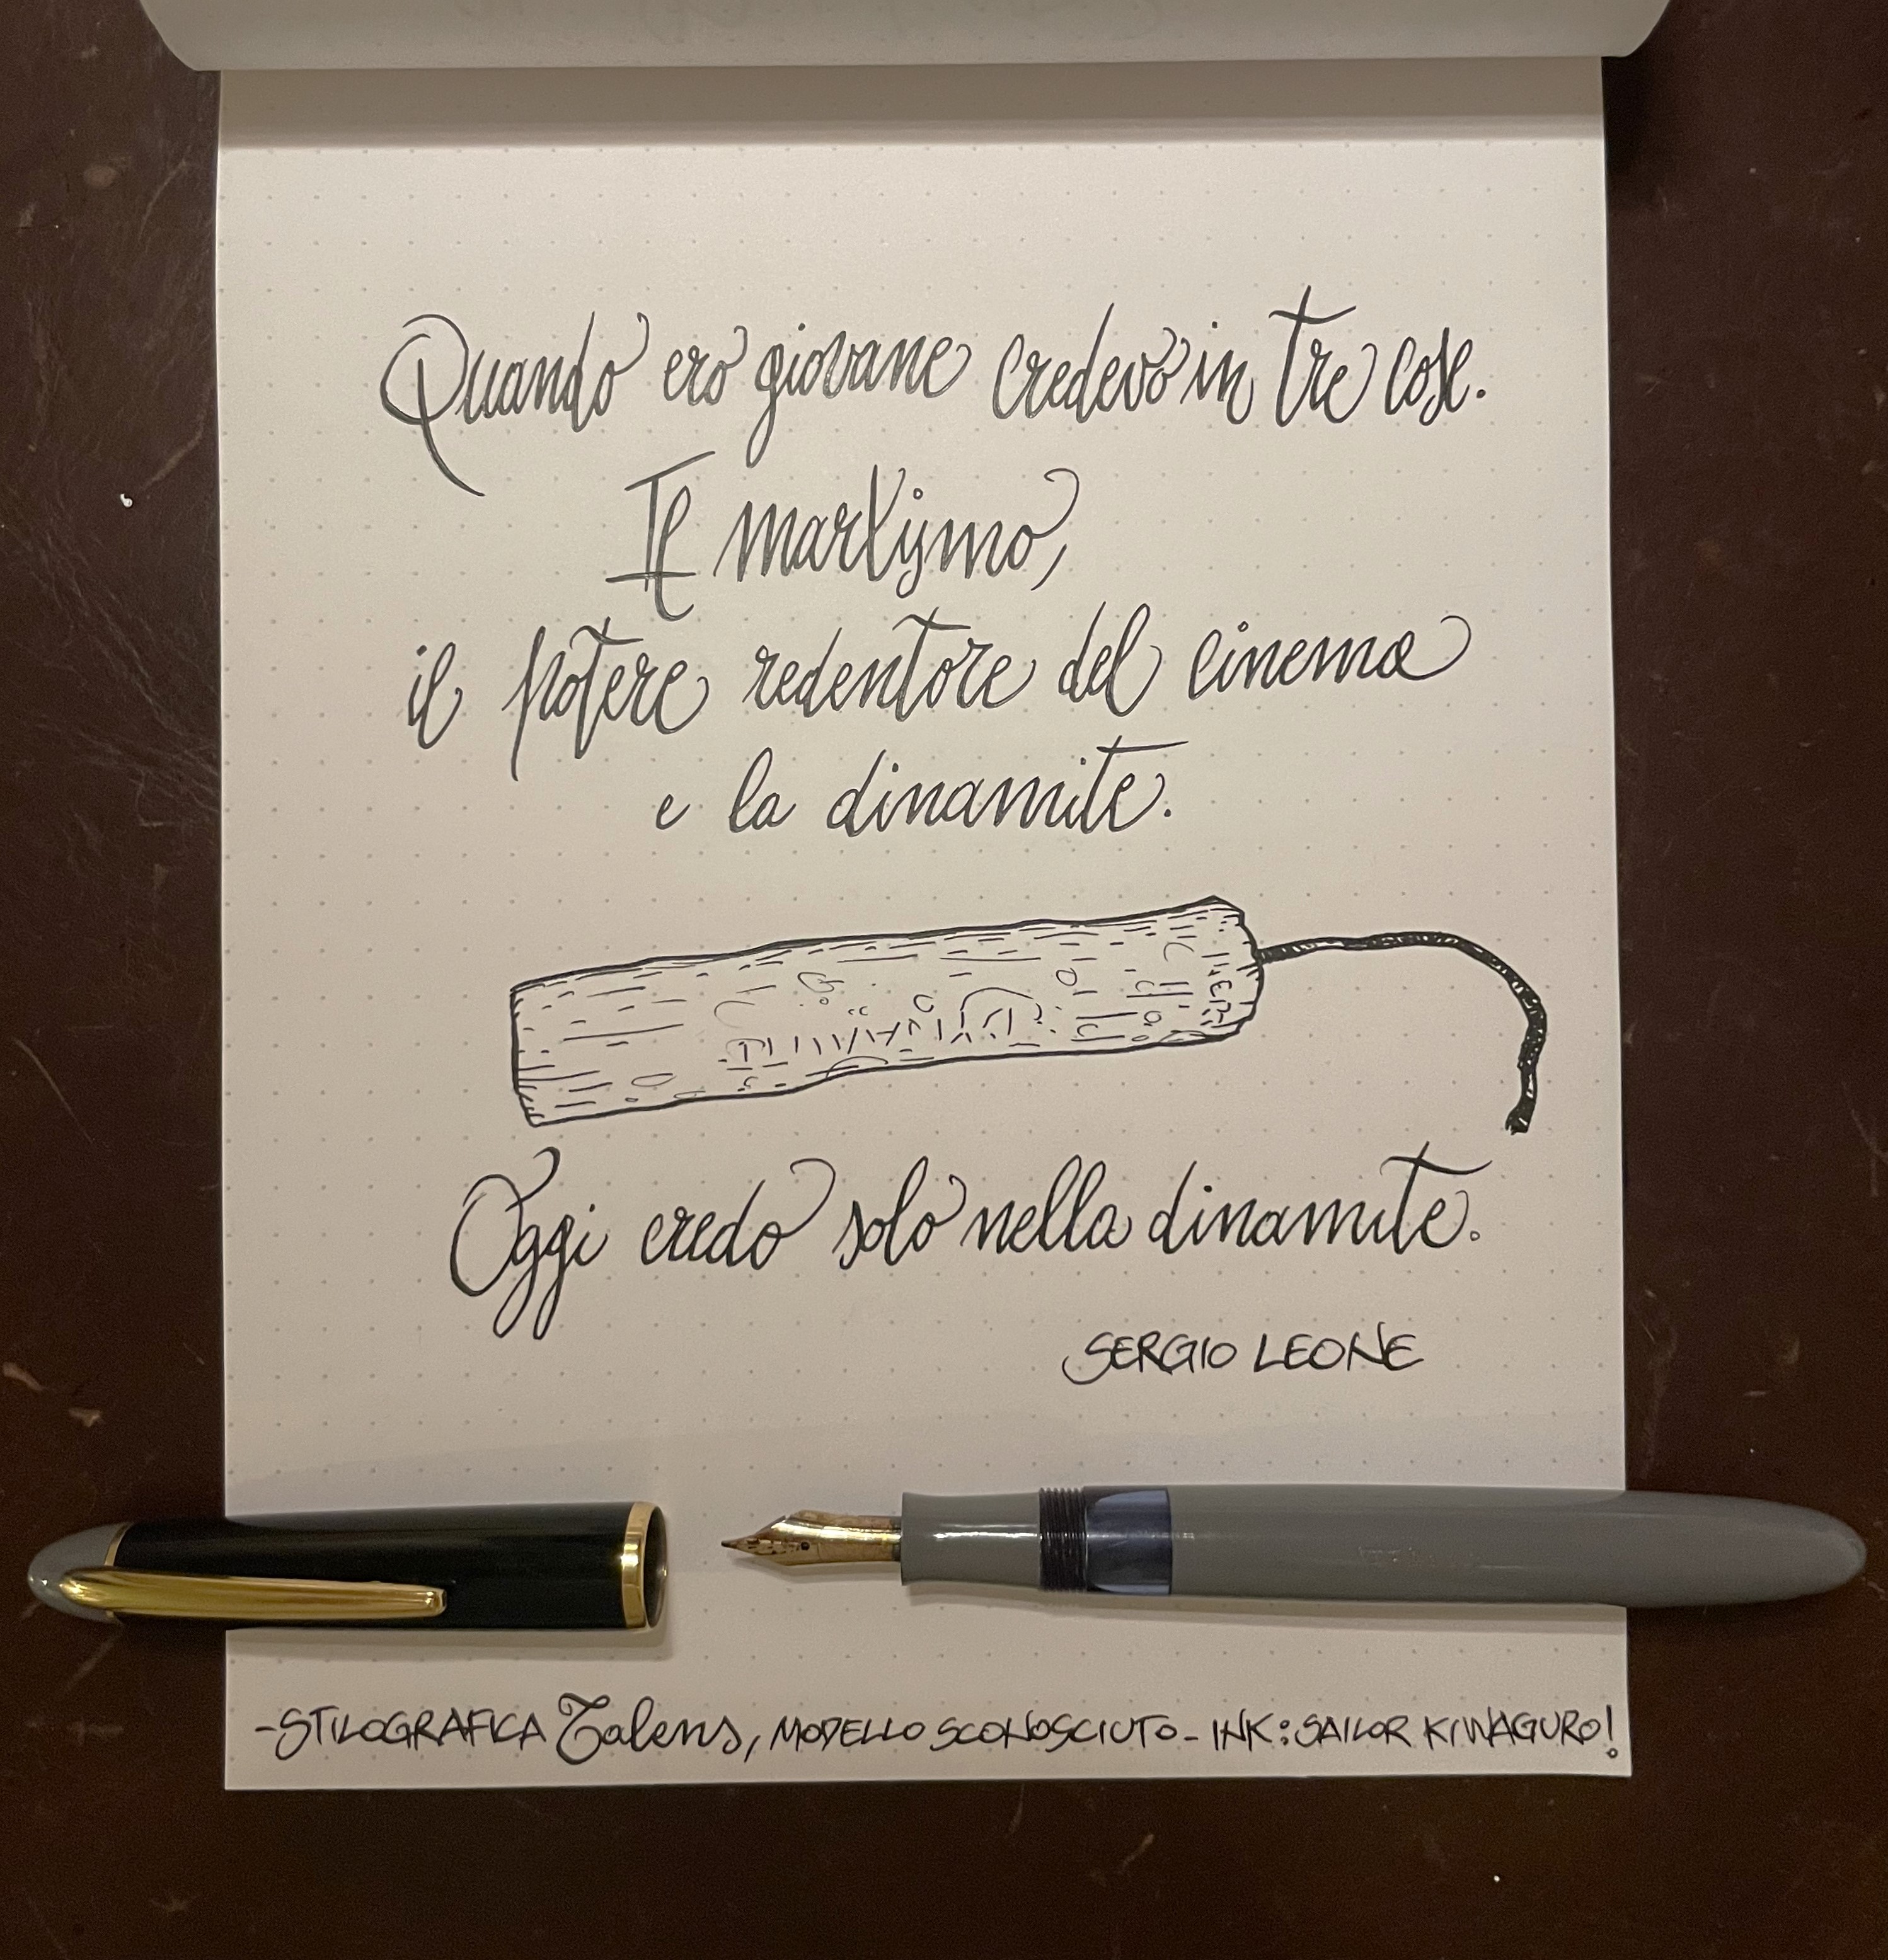 Quando ero giovane credevo in tre cose.
Il marxismo,
il potere redentore del cinema
e la dinamite.
Oggi credo solo nella dinamite.
SERGIO LEONE
-STILOGRAFICA Talens, MODELLO SCONOSCIUTO - INK: SAILOR KIWAGURO!